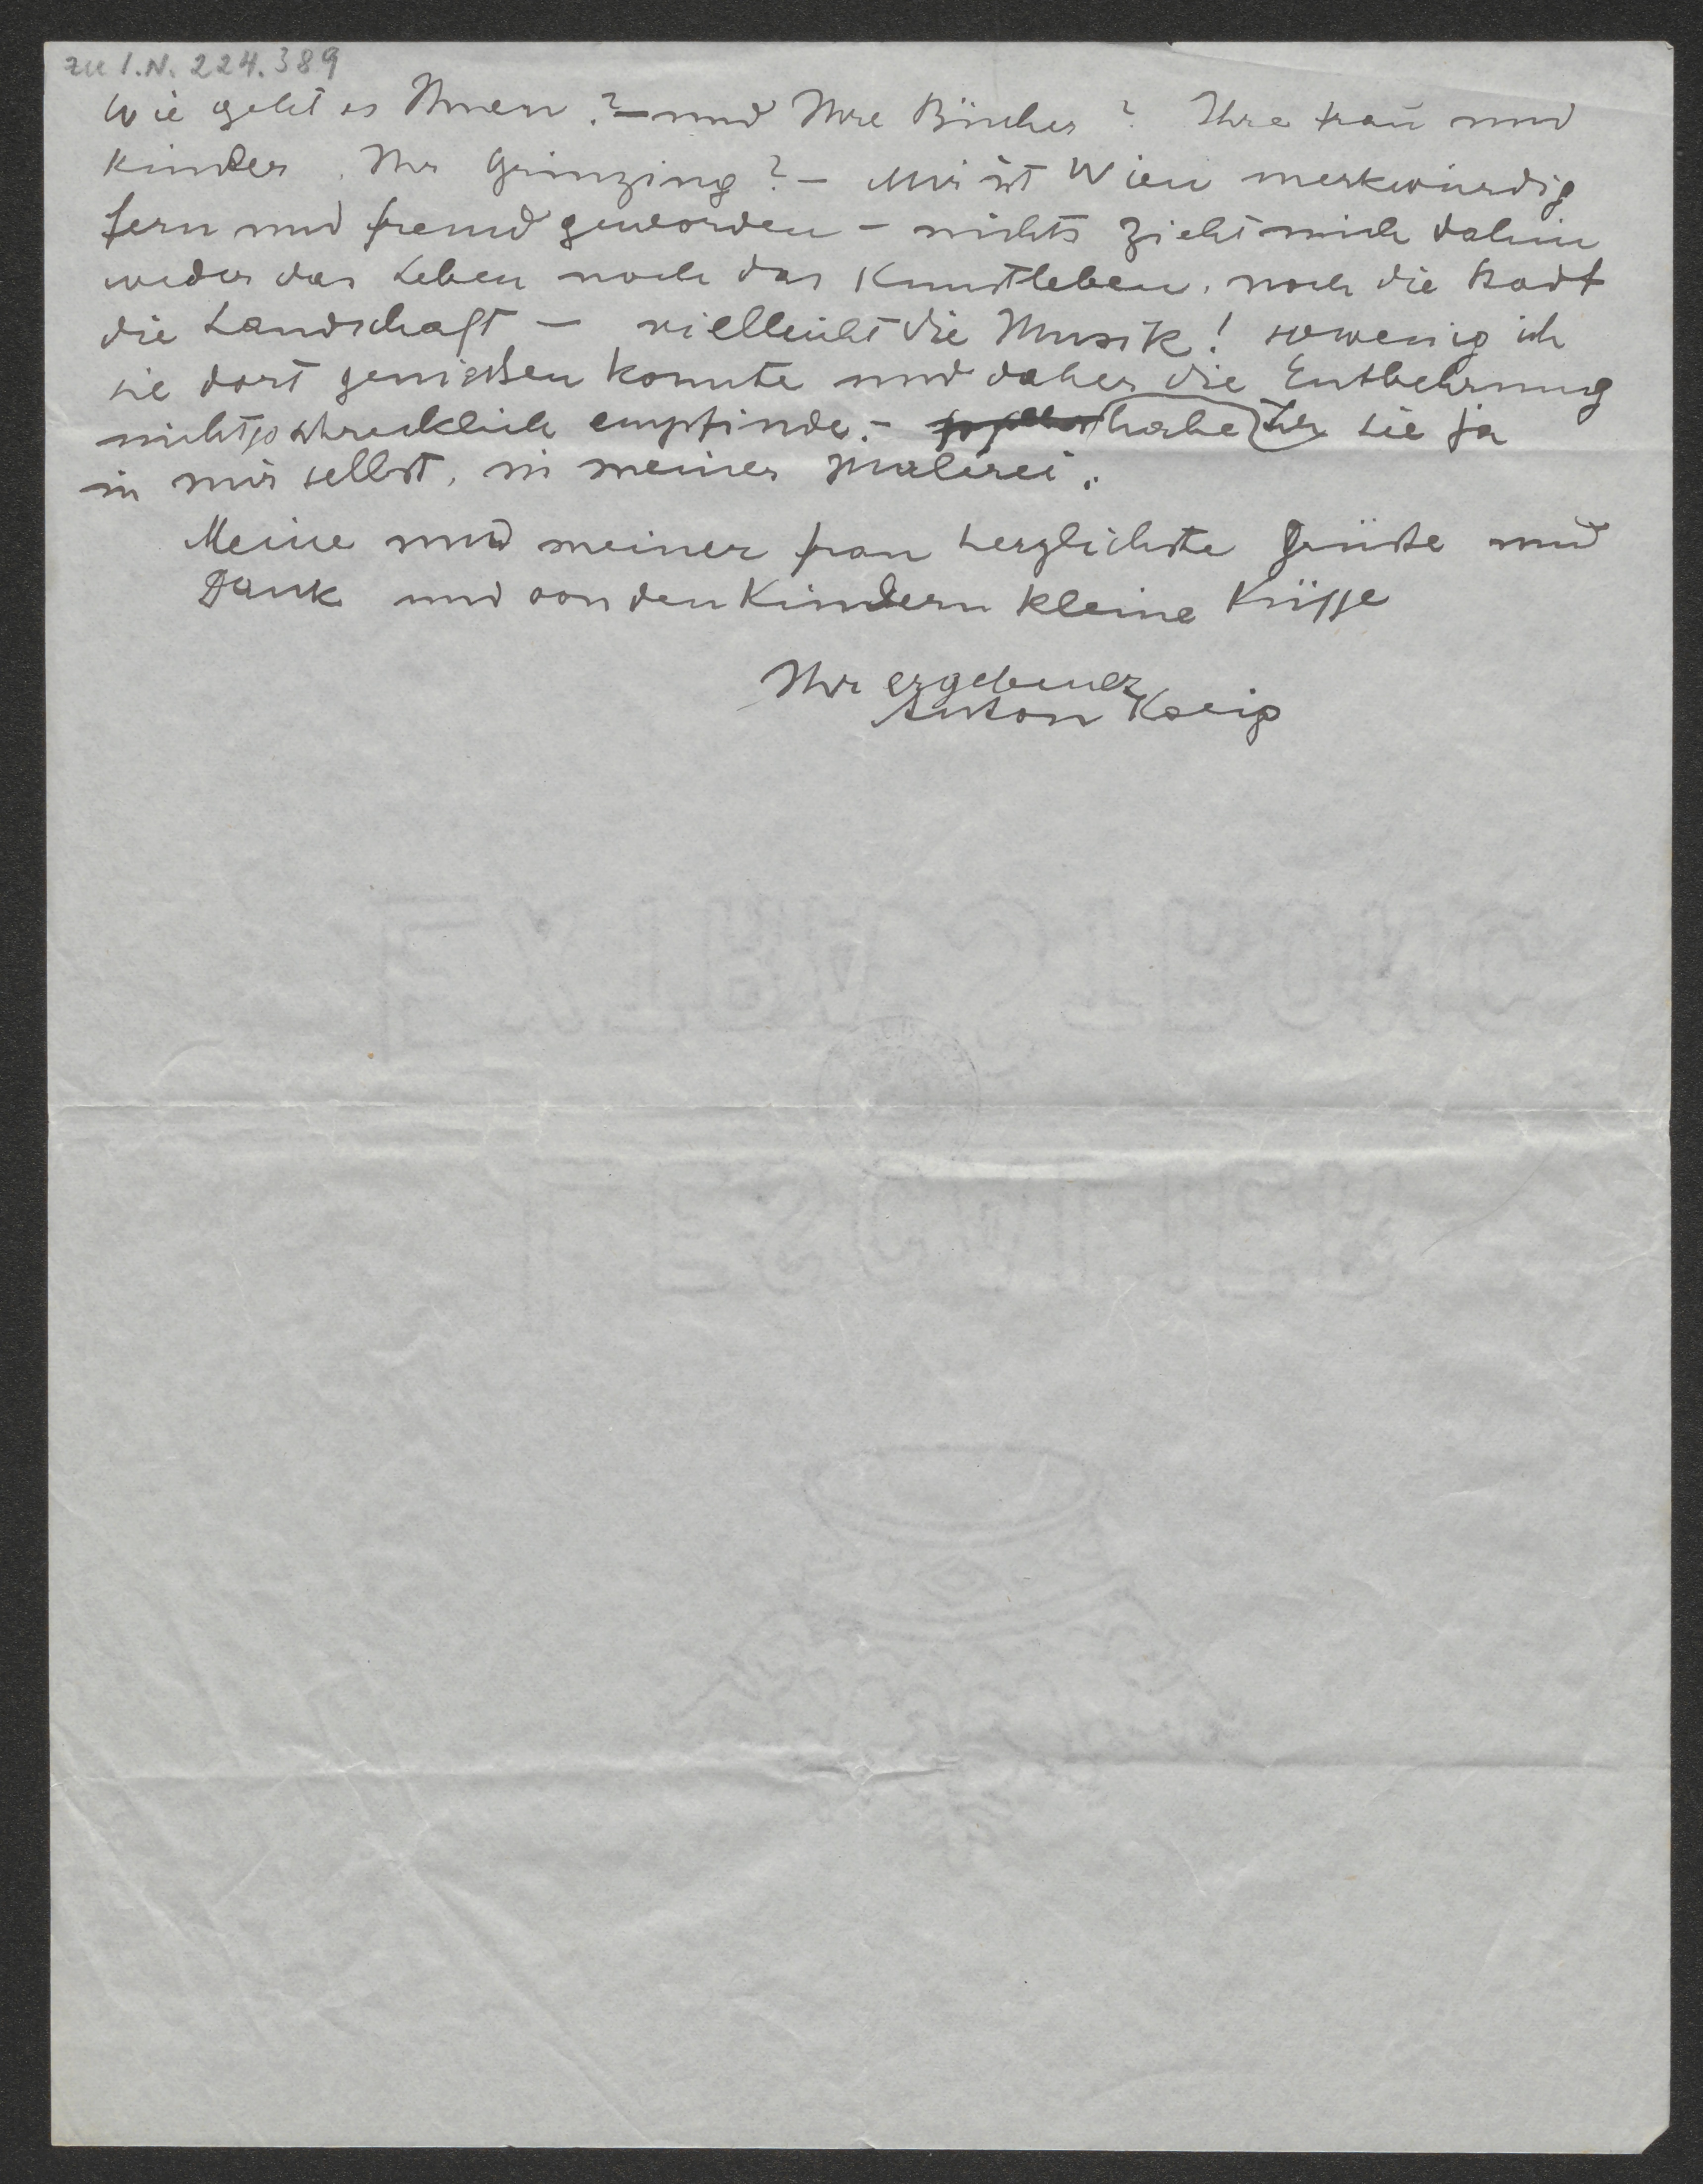 zu I.N. 224.389
Wie geht es Ihnen? – und Ihre Bücher? Ihre Frau und
Kinder. Ihr Grinzing? – Mir ist Wien merkwürdig
fern und fremd geworden – nichts zieht mich dahin
weder das Leben noch das Kunstleben, noch die Stadt
die Landschaft – vielleicht die Musik! sowenig ich
sie dort genießen konnte und daher die Entbehrung
nicht so schrecklich empfinde. – habe ich sie ja
in mir selbst, in meiner Malerei.
Meine und meiner Frau herzlichste Grüße und
Dank und von den Kindern kleine Küsse
Ihr ergebener
Anton
EXTRA STRONG